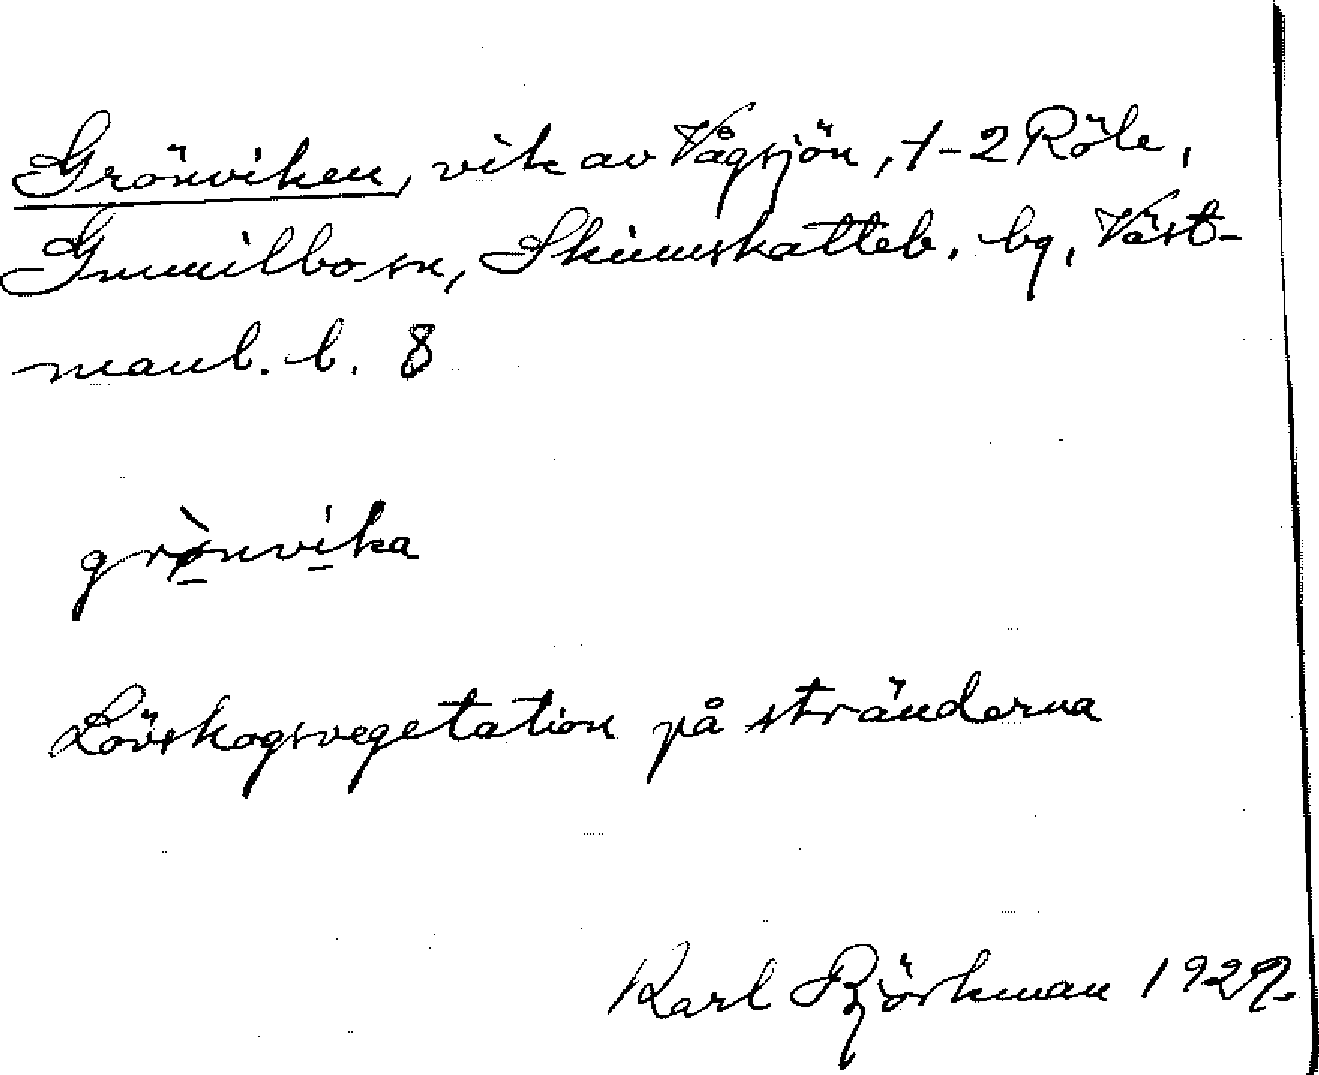 Grönviken, vik av Vågsjön, 1-2 Röle,
Gunnilbo sn, Skinnskatteb. bg, Väst-
manl. l. 8
grònvika
Lövskogsvegetation på stränderna
Karl Björkman 1929.